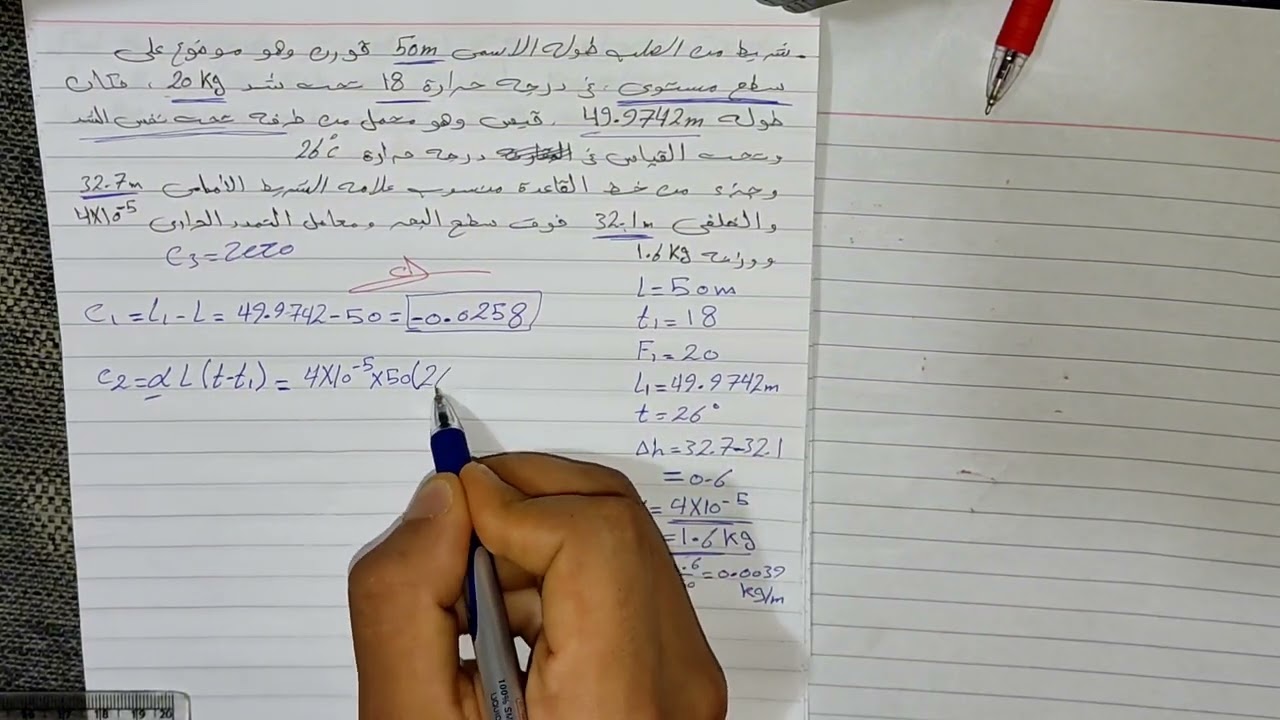 شريط من الصلب طوله الاسمى 50m قورن وهو موضوع على
سطح مستوى، فى درجه حرارة 18 تحت شد 20 kg، فكان
طوله 49.9742m. قيس وهو محمل من طرفه تحت نفس الشد
وتحت القياس فى درجه حرارة 26°c
وجزء من خط القاعدة منسوب علامه الشريط الأمامى 32.7m
والخلفى 32.1m فوق سطح البحر ومعامل التمدد الحرارى 4X10-5
ووزنه 1.6 kg
C3=zero
L=50m
C1=L1-L=49.9742-50=-0.0258
t1=18
F1=20
C2=αL(t-t1)=4X10-5X50(2
L1=49.9742m
t=26°
Δh=32.7-32.1
=0.6
=4X10-5
=1.6kg
=0.0039
kg/m
100%
17 18 19 20